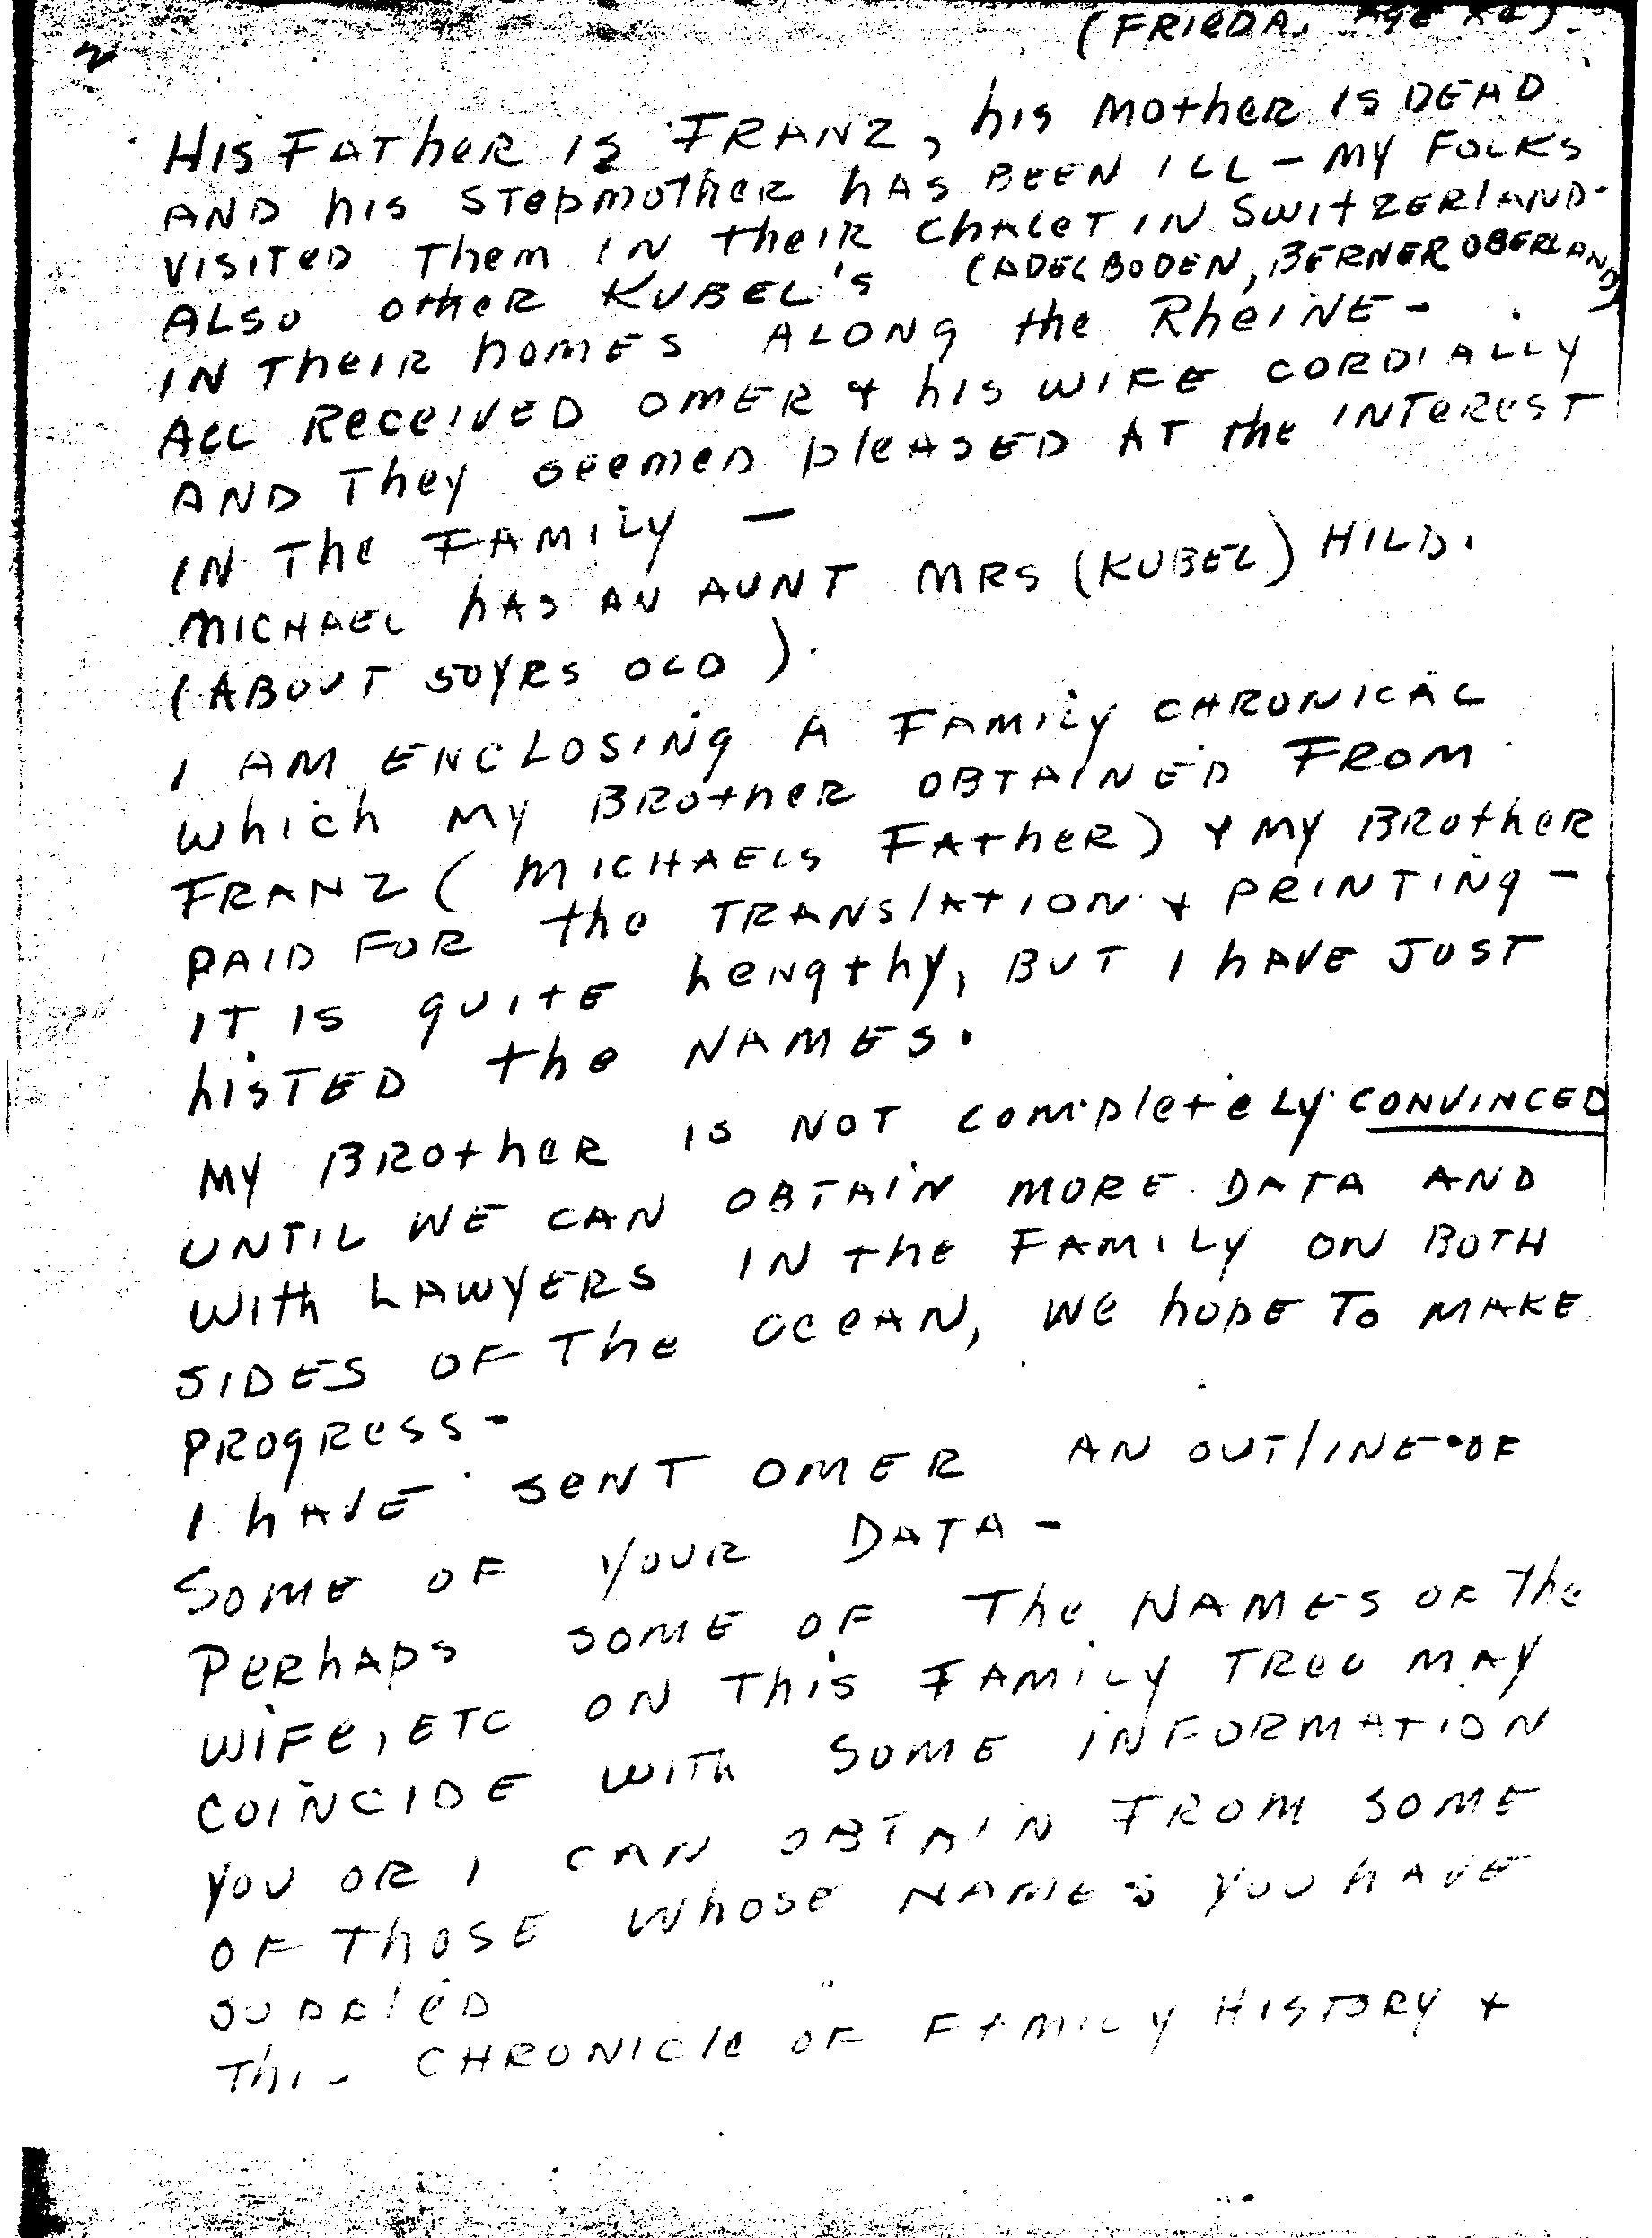 (FRIEDA, Age
2
HIS FATHER IS FRANZ, his MOTHER IS DEAD
AND his STEPMOTHER hAS BEEN ILL - MY FOLKS
VISITED Them IN their CHALET IN SWITZERLAND-
(ADELBODEN, BERNER OBERLAND)
ALSO other KUBEL'S
IN THEIR homES ALONG the RheINE -
ALL RECEIVED OMER + his WIFE CORDIALLY
AND They seemed pleASED AT the INTEREST
IN The FAMILY -
MICHAEL hAS AN AUNT MRS (KUBEL) HILD.
(ABOUT 50YRS OLD).
I AM ENCLOSING A FAMILY CHRONICAL
which MY BROTHER OBTAINED FROM
FRANZ (MICHAELS FATHER) + MY BROTHER
PAID FOR the TRANSLATION + PRINTING -
IT IS QUITE LENgthy, BUT I hAVE JUST
LISTED the NAMES.
MY BROTHER IS NOT completeLy CONVINCED
UNTIL WE CAN OBTAIN MORE DATA AND
With LAWYERS IN the FAMILY ON BOTH
SIDES OF The OCEAN, we hope To MAKE
PROGRESS -
I hAVE SENT OMER AN OUTLINE OF
SOME OF YOUR DATA -
PERhAPS SOME OF The NAMES OF The
WIFE, ETC ON This FAMILY TREE MAY
COINCIDE WITH SOME INFORMATION
YOU OR I CAN OBTAIN FROM SOME
OF THOSE WhOSE NAMES YOU hAVE
This CHRONICLE OF FAMILY HISTORY +